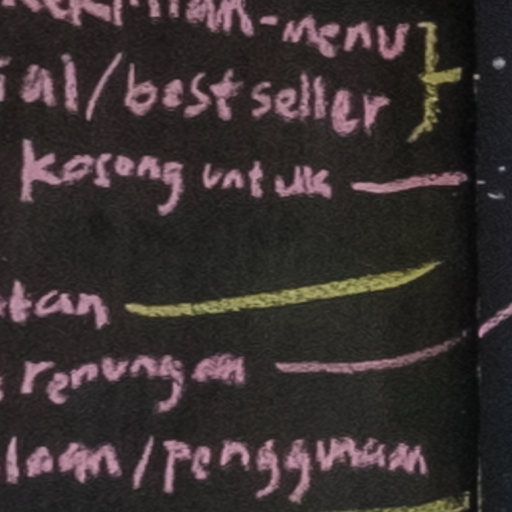 -menu
ial/best seller
kosong untuk
tan
renungan
/penggunaan